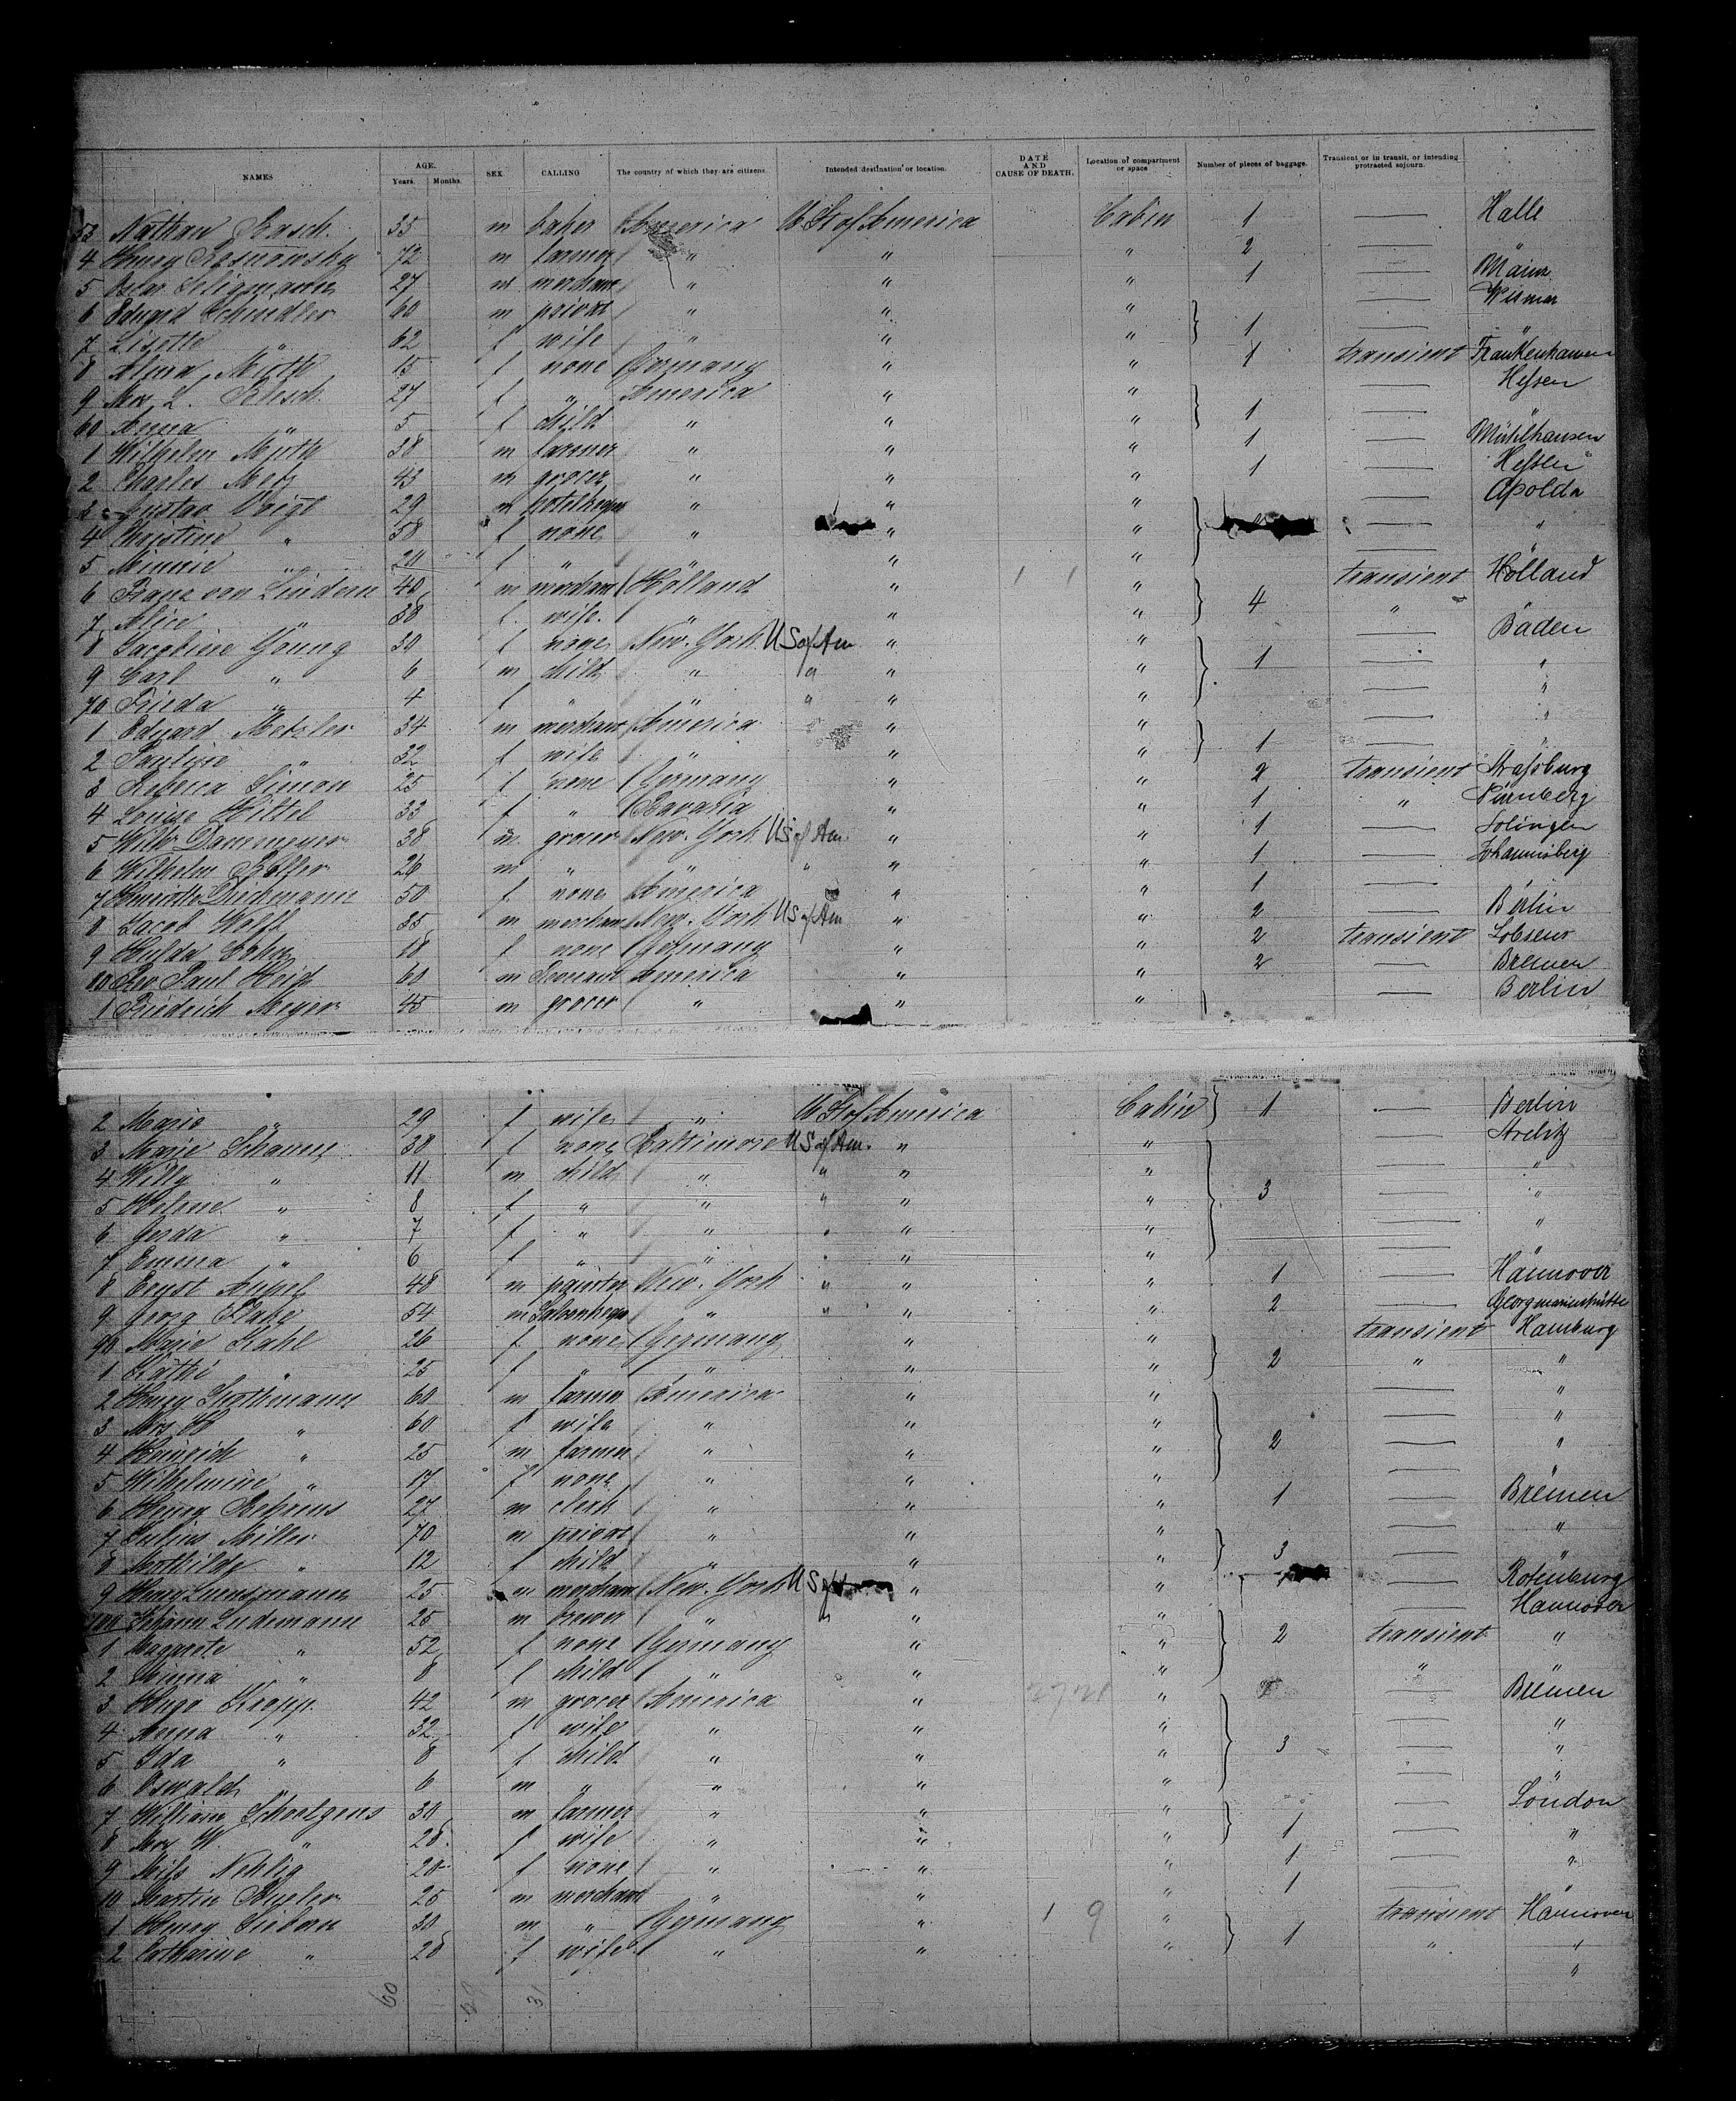 NAMES AGE. Years. Months. SEX CALLING The country of which they are citizens. Intended destination or location. DATE AND CAUSE OF DEATH. Location of compartment or space Number of pieces of baggage. Transient or in transit, or intending protracted sojourn.
53 Nathan 35 m baker America U St of America Cabin 1 — Halle
4 Henry 72 m farmer " " " 2 —
5 Oscar Seligmann 27 m merchant " " " 1 — Mainz
6 Eduard Schindler 60 m privat " " " — Wismar
7 Lisette " 62 f wife " " " 1 — "
8 Alma Mirth 15 f none Germany " " 1 transient Frankenhausen
9 Mrs L. 27 f " America " " — Hessen
60 Anna " 5 f child " " " 1 —
1 Wilhelm Mirth 38 m farmer " " " 1 — Mühlhausen
2 Charles Metz 43 m grocer " " " 1 — Hessen
3 Gustav Voigt 29 m hotelkeeper " " " — Apolda
4 Christine " 58 f none " " " — "
5 Minnie " 20 f " " " —
6 Franz von Lindern 40 m merchant Holland " " transient Holland
7 Alice " 38 f wife " " " 4 "
8 Jacobine Young 30 f none New-York US of Am " " — Baden
9 Carl " 6 m child " " " " 1 — "
70 Frieda " 4 f " " " " " — "
1 Eduard Metzler 34 m merchant America " " — "
2 Pauline " 32 f wife " " " 1 — "
3 Rebecca Simon 25 f none Germany " " 2 transient Strassburg
4 Louise Hittel 33 f " Bavaria " " 1 " Nürnberg
5 Wilh. Dannmeyer 38 m grocer New-York US of Am. " " 1 — Solingen
6 Wilhelm 26 m " " " " " 1 — Johannisberg
7 Henriette Diedmann 50 f none America " " 1 —
8 Jacob Wolff 35 m merchant New-York US of Am " " 2 — Berlin
9 Hulda Cohn 18 f none Germany " " 2 transient Lobsens
80 Rev. Paul Heiss 60 m America " " 2 — Bremen
1 Friedrich Meyer 45 m grocer " " " — Berlin
2 Marie " 29 f wife " U St of America Cabin 1 — Berlin
3 Marie Schaum 38 f none Baltimore US of Am. " " — Strelitz
4 Willy " 11 m child " " " " — "
5 Helene " 8 f " " " " " 3 — "
6 Gerda " 7 f " " " " " — "
7 Emma " 6 f " " " " " —
8 Ernst Appel 48 m painter New-York " " " 1 — Hannover
9 Georg Flake 54 m Saloonkeeper " " " " 2 — Georgmarienhütte
90 Marie Kahl 26 f none Germany " " transient Hamburg
1 Käthi " 25 f " " " " 2 " "
2 Henry Strothmann 60 m farmer America " " — "
3 Mrs H " 60 f wife " " " — "
4 Heinrich " 25 m farmer " " " 2 — "
5 Wilhelmine " 17 f none " " " —
6 Henry Behrens 27 m clerk " " " 1 — Bremen
7 Julius Miller 70 m privat " " " — "
8 Mathilde " 12 f child " " " 3 — "
9 Henry Luensmann 25 m merchant New-York US of " " — Rotenburg
100 Johann Ludemann 25 m brewer " " " — Hannover
1 Magreete " 52 f none Germany " " 2 transient "
2 Minna " 8 f child " " " " "
3 Hugo Kropp 42 m grocer America " " — Bremen
4 Anna " 32 f wife " " " — "
5 Ida " 8 f child " " " 3 — "
6 Oswald " 6 m " " " " — "
7 William Schoetgens 30 m farmer " " " — London
8 Mrs W " 28 f wife " " " 1 — "
9 Miss Nehlig 20 f none " " " 1 — "
10 Martin 25 m merchant " " " 1 — "
1 Henry Sieborn 30 m " Germany " 1 9 " transient Hannover
2 Catharine " 28 f wife " " " 1 " "
"
60 29 31